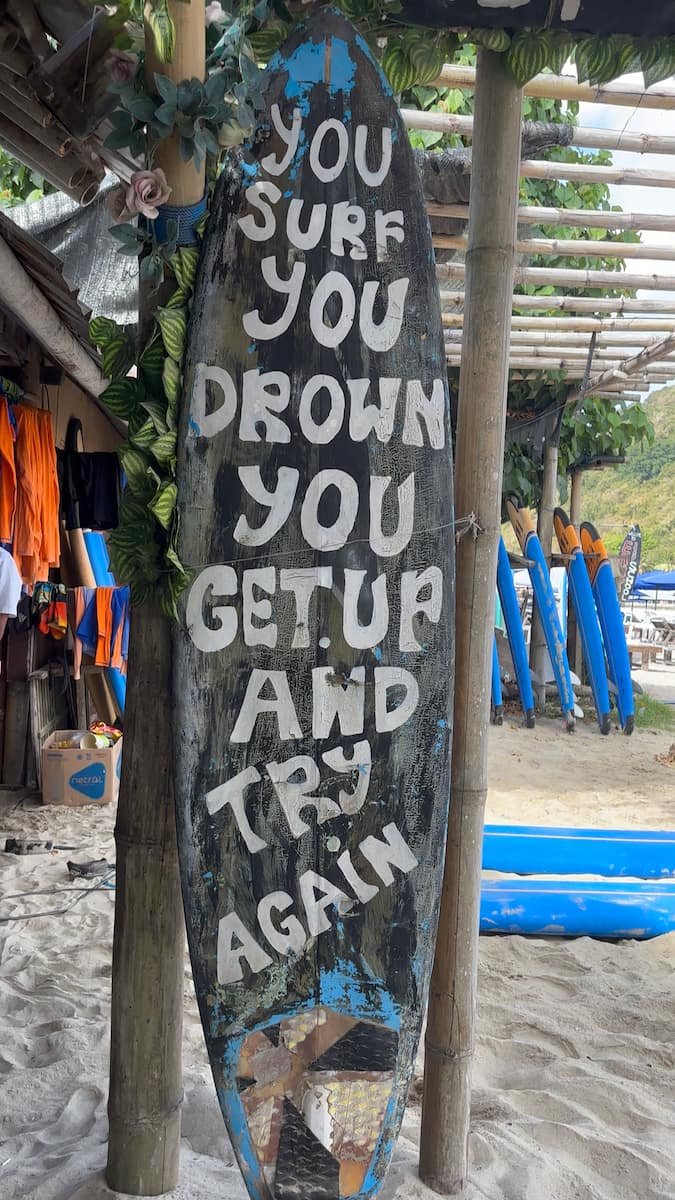 YOU
SURF
YOU
DROWN
YOU
GET.UP
AND
TRY
AGAIN
netral